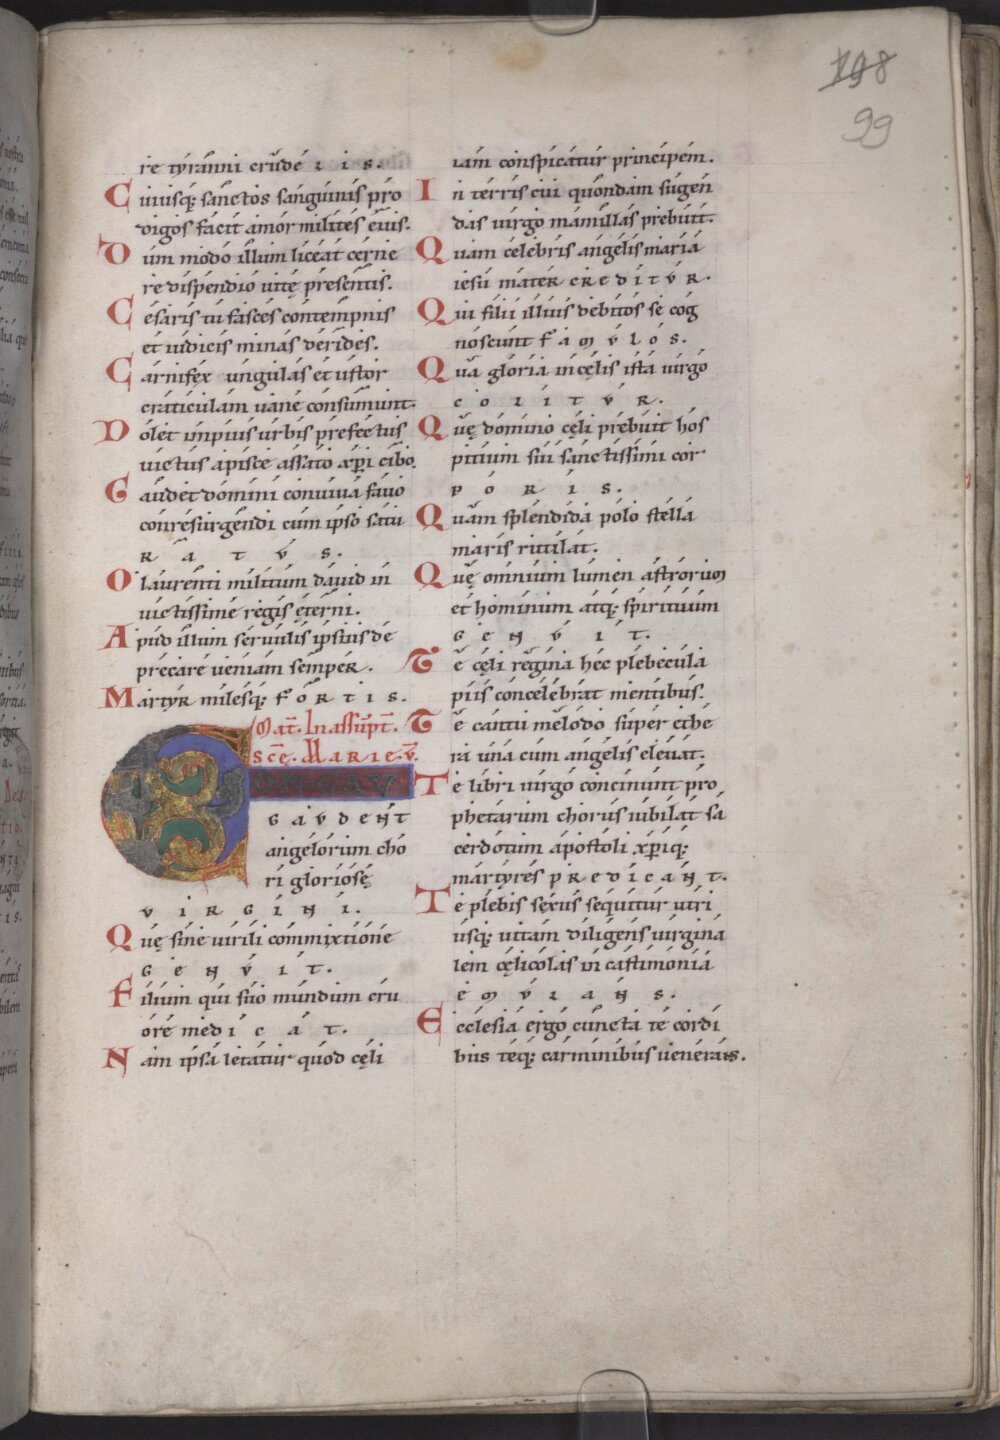 198
99
re tyranni crudelis.
Cuiusq; sanctos sanguinis pro
digos facit amor milites eius.
Dum modo illum liceat cerne
re dispendio uitę presentis.
Cesaris tu fasces contempnis
et iudicis minas derides.
Carnifex ungulas et ustor
craticulam uane consumunt.
Dolet impius urbis prefectus
uictus a pisce assato xp̄i cibo.
Gaudet domini conuiua fauo
conresurgendi cum ipso satu
RATVS.
O laurenti militum dauid in
uictissime regis ęterni.
Apud illum seruulis ipsius de
precare ueniam semper.
Martyr milesq; FORTIS.
In assūpt̄.
scē. MARIE. V̄.
GAVDENT
angelorum cho
ri gloriosę
VIRGINI.
Quę sine uirili commixtione
GENVIT.
Filium qui suo mundum cru
ore medICAT.
Nam ipsa letatur quod cęli
iam conspicatur principem.
In terris cui quondam sugen
das uirgo mamillas prebuit.
Quam celebris angelis maria
iesu mater CREDITVR.
Qui filii illius debitos se cog
noscunt FAMVLOS.
Qua gloria in cęlis ista uirgo
COLITVR.
Quę domino cęli prebuit hos
pitium sui sanctissimi cor
PORIS.
Quam splendida polo stella
maris rutilat.
Quę omnium lumen astrorum
et hominum atq; spirituum
GENVIT.
Te cęli regina hec plebecula
piis concelebrat mentibus.
Te cantu melodo super ethe
ra una cum angelis eleuat.
Te libri uirgo concinunt pro
phetarum chorus iubilat sa
cerdotum apostoli xp̄iq;
martyres PREDICANT.
Te plebis sexus sequitur utri
usq; uitam diligens uirgina
lem cęlicolas in castimonia
EMVLANS.
Ecclesia ergo cuncta te cordi
bus teq; carminibus uenerans.